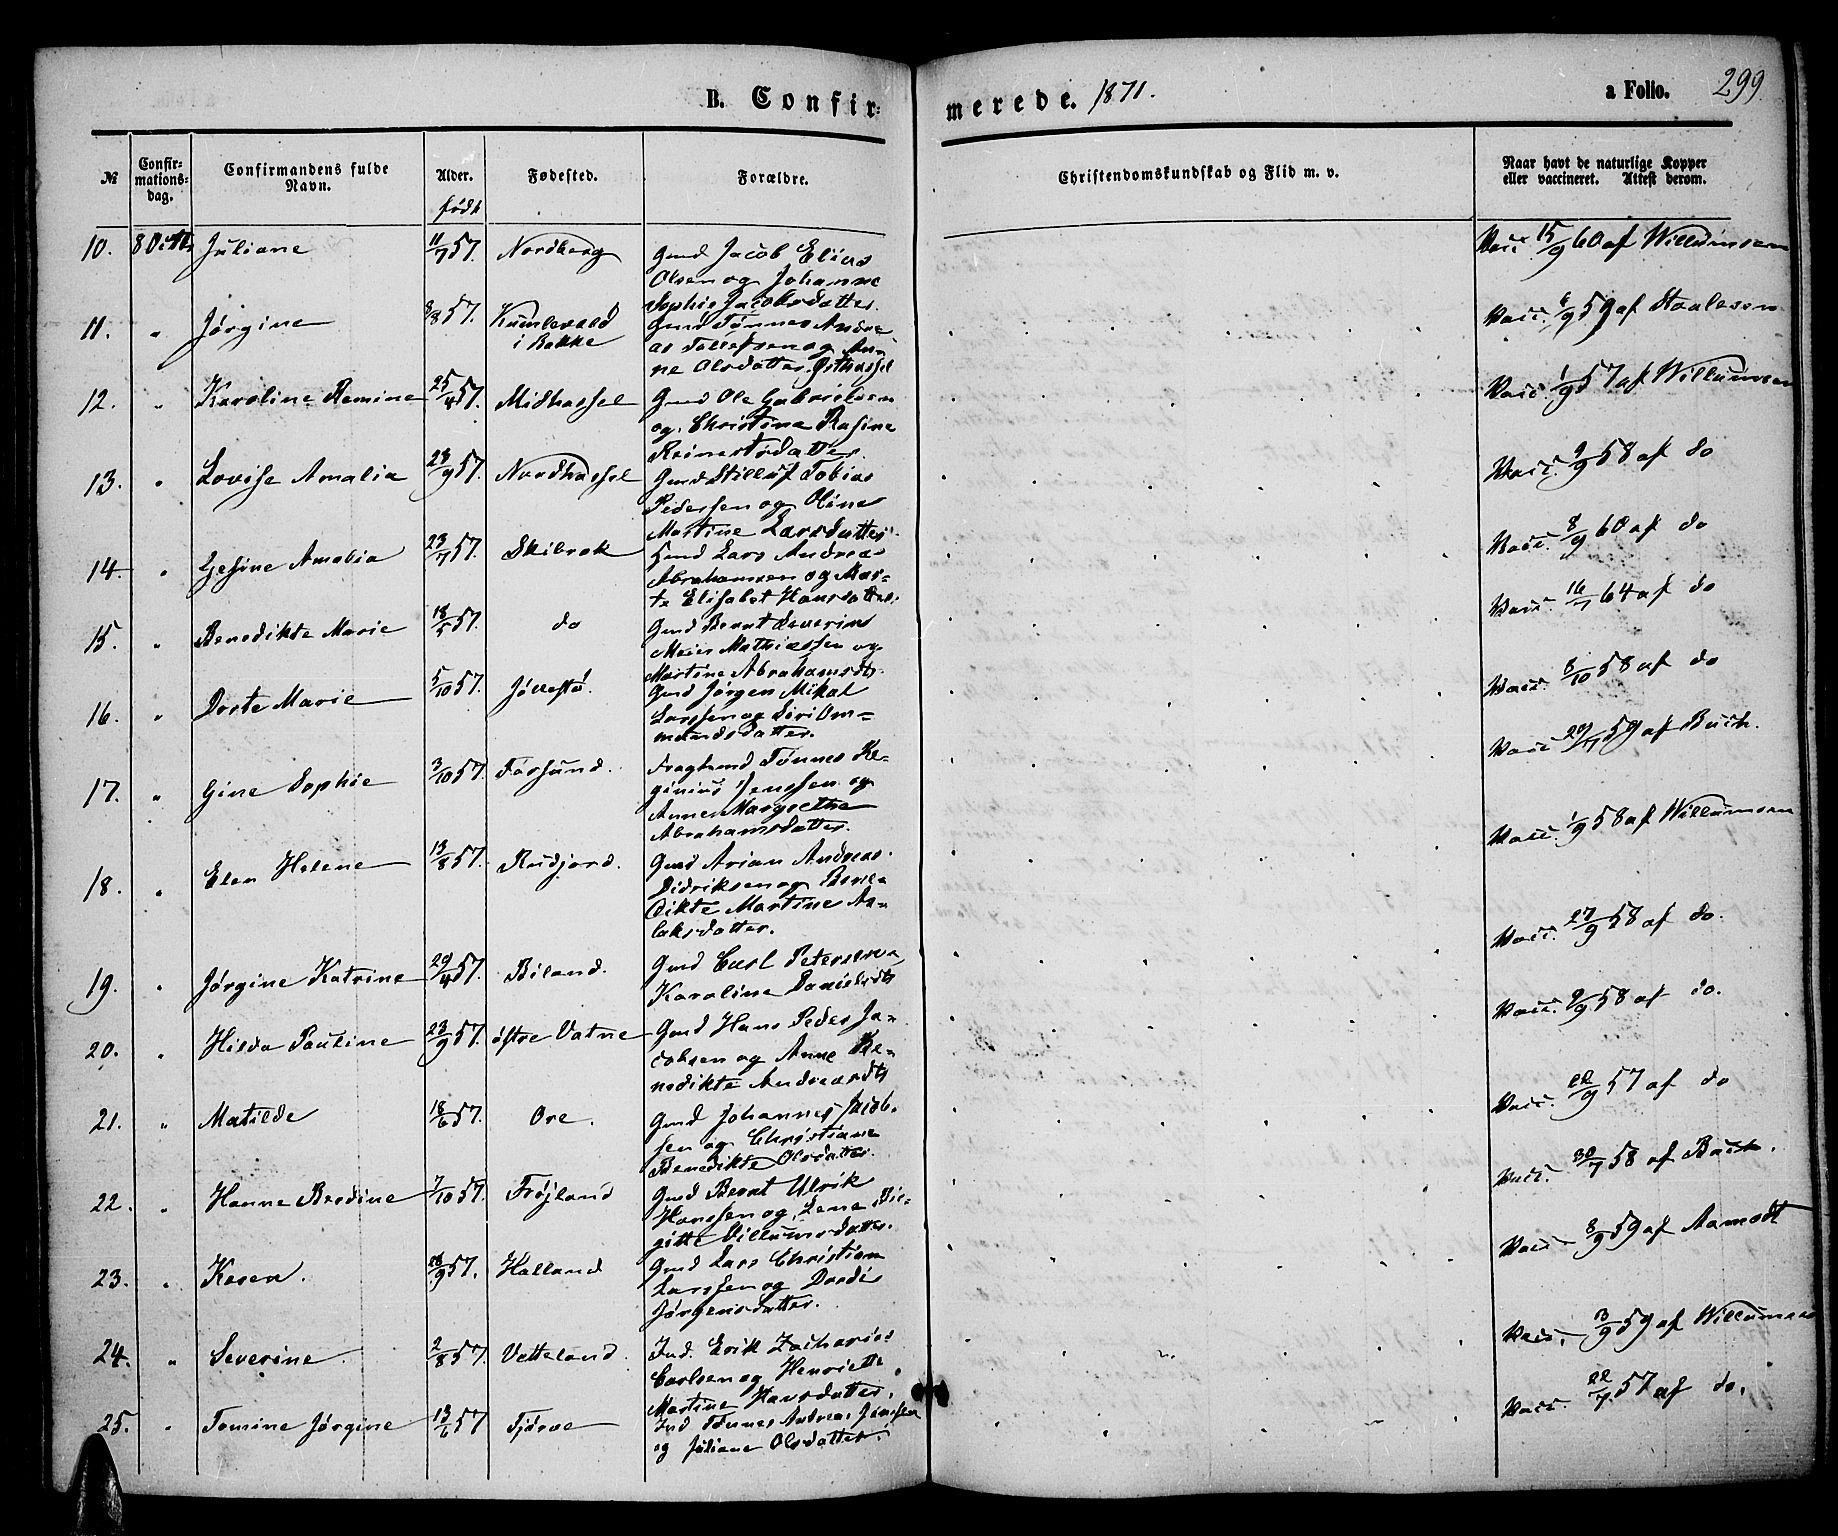 B. Confir-
merede. 1871.
a Folio. 299
№
Confir-
mations-
dag.
Confirmandens fulde
Navn.
Alder.
født
Fødested.
Forældre.
Christendomskundskab og Flid m. v.
Naar havt de naturlige Kopper
eller vaccineret. Attest derom.
10. 8 Juliane 11/7 57. Nordberg Gmd Jacob Elias
Olsen og Johanne
Sophie Jacobsdatter.
Vacc. 15/9 60 af Willumsen
11. " Jørgine 8/8 57. Kumlevold
i Bakke
Gmd Tønnes Andre-
as Tollefsen og An-
ne Olsdatter. Østhassel
Vacc. 6/9 59 af Staalesen
12. " Karoline Remine 25/4 57. Midhassel Gmd Ole Gabrielsen
og Christine Rasine
Reinertsdatter.
Vacc. 1/9 57 af Willumsen
13. " Lovise Amalia 28/9 57. Nordhassel Gmd Stilluf Tobias
Pedersen og Oline
Martine Larsdatter.
Vacc. 9/9 58 af do
14. " Gesine Amalia 23/7 57. Skibrok Gmd Lars Andreas
Abrahamsen og Mar-
te Elisabet Hansdatter.
Vacc. 8/9 60 af do
15. " Benedikte Marie 18/5 57. do Gmd Bernt Severin
Meier Mathiassen og
Martine Abrahamsdtr.
Vacc. 16/7 64 af do
16. " Dorte Marie 5/10 57. Jøllestø. Gmd Jørgen Mikal
Larssen og Siri Om-
mundsdatter.
Vacc. 8/10 58 af do
17. " Gine Sophie 3/10 57. Farsund. Tønnes Re-
ginius Jenssen og
Anne Margrethe
Abrahamsdatter.
Vacc. 29/7 59 af Buch.
18. " Elen Helene 13/8 57. Rudjord. Gmd Arian Andreas
Didriksen og Bene-
dikte Martine As-
laksdatter.
Vacc. 1/9 58 af Willumsen
19. " Jørgine Katrine 29/4 57. Biland. Gmd Carl Petersen,
Karoline Danielsdtr
Vacc. 27/9 58 af do.
20. " Hilda Pauline 23/9 57. østre Vatne Gmd Hans Peder Ja-
cobsen og Anne Be-
nedikte Andreasdtr
Vacc. 9/9 58 af do.
21. " Matilde 18/6 57. Ore. Gmd Johannes Jacob-
sen og Christiane
Benedikte Olsdatter.
Vacc. 22/9 57 af do
22. " Hanne Bredine 7/10 57. Frøjland Gmd Bernt Ulrik
Hanssen og Lene Bir-
gitte Villumsdatter.
Vacc. 30/7 58 af Buch.
23. " Karen. 28/9 57. Halland Gmd Lars Christian
Larssen og Dordi
Jørgensdatter.
Vacc. 8/9 59 af Aamodt
24. " Severine. 2/8 57. Vetteland. Ind. Erik Zacharias
Carlsen og Henriette
Martine Hansdatter.
Vacc. 13/9 59 af Willumsen
25. " Tomine Jørgine 13/6 57 Tjørve Ind Tønnes Andreas Jenssen
og Juliane Olsdatter.
Vacc. 22/7 57 af do.